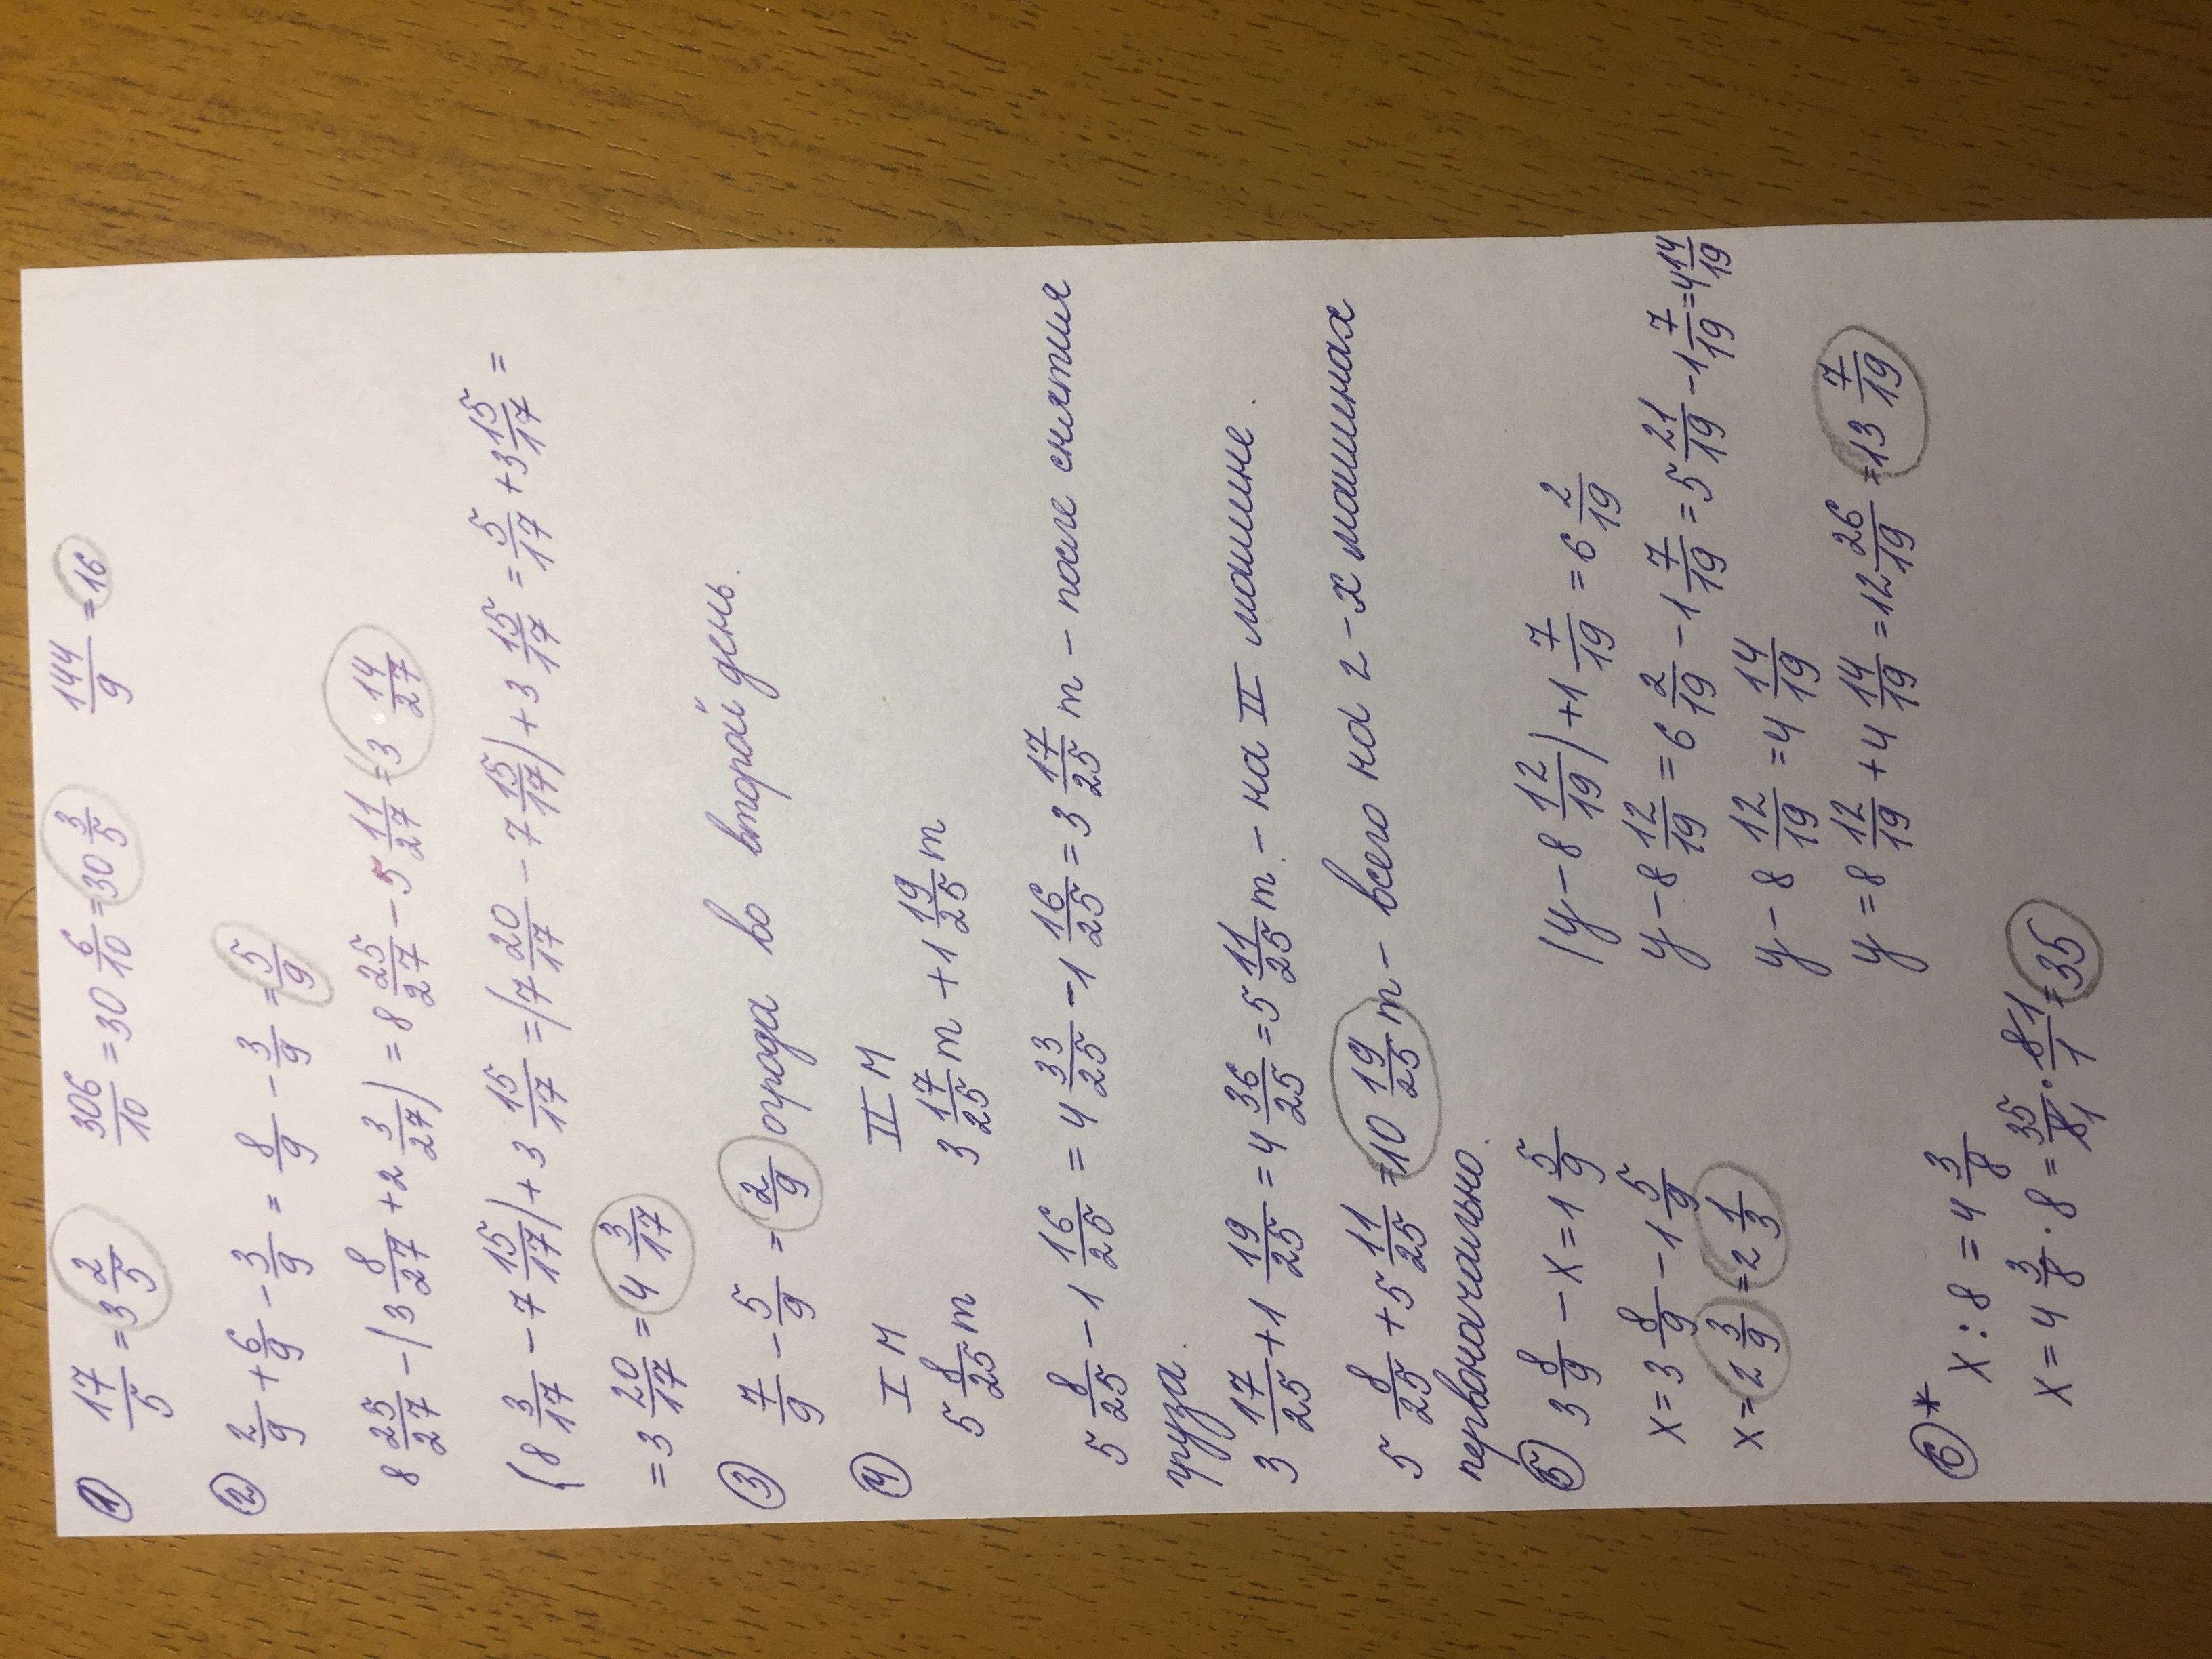 ① 17/5 = 3 2/5 306/10 = 30 6/10 = 30 3/5 144/9 = 16
② 2/9 + 6/9 - 3/9 = 8/9 - 3/9 = 5/9
8 25/27 - (3 8/27 + 2 3/27) = 8 25/27 - 5 11/27 = 3 14/27
(8 3/17 - 7 15/17) + 3 15/17 = (7 20/17 - 7 15/17) + 3 15/17 = 5/17 + 3 15/17 =
= 3 20/17 = 4 3/17
③ 7/9 - 5/9 = 2/9 огорода во второй день.
④ I м II м
5 8/25 т 3 17/25 т + 1 19/25 т
5 8/25 - 1 16/25 = 4 33/25 - 1 16/25 = 3 17/25 т - после снятия
груза.
3 17/25 + 1 19/25 = 4 36/25 = 5 11/25 т. - на II машине.
5 8/25 + 5 11/25 = 10 19/25 т - всего на 2-х машинах
первоначально.
⑤ 3 8/9 - x = 1 5/9 (y - 8 12/19) + 1 7/19 = 6 2/19
x = 3 8/9 - 1 5/9 y - 8 12/19 = 6 2/19 - 1 7/19 = 5 21/19 - 1 7/19 = 4 14/19
x = 2 3/9 = 2 1/3 y - 8 12/19 = 4 14/19
y = 8 12/19 + 4 14/19 = 12 26/19 = 13 7/19
⑥*
x : 8 = 4 3/8
x = 4 3/8 · 8 = 35/8 1 · 8 1/1 = 35